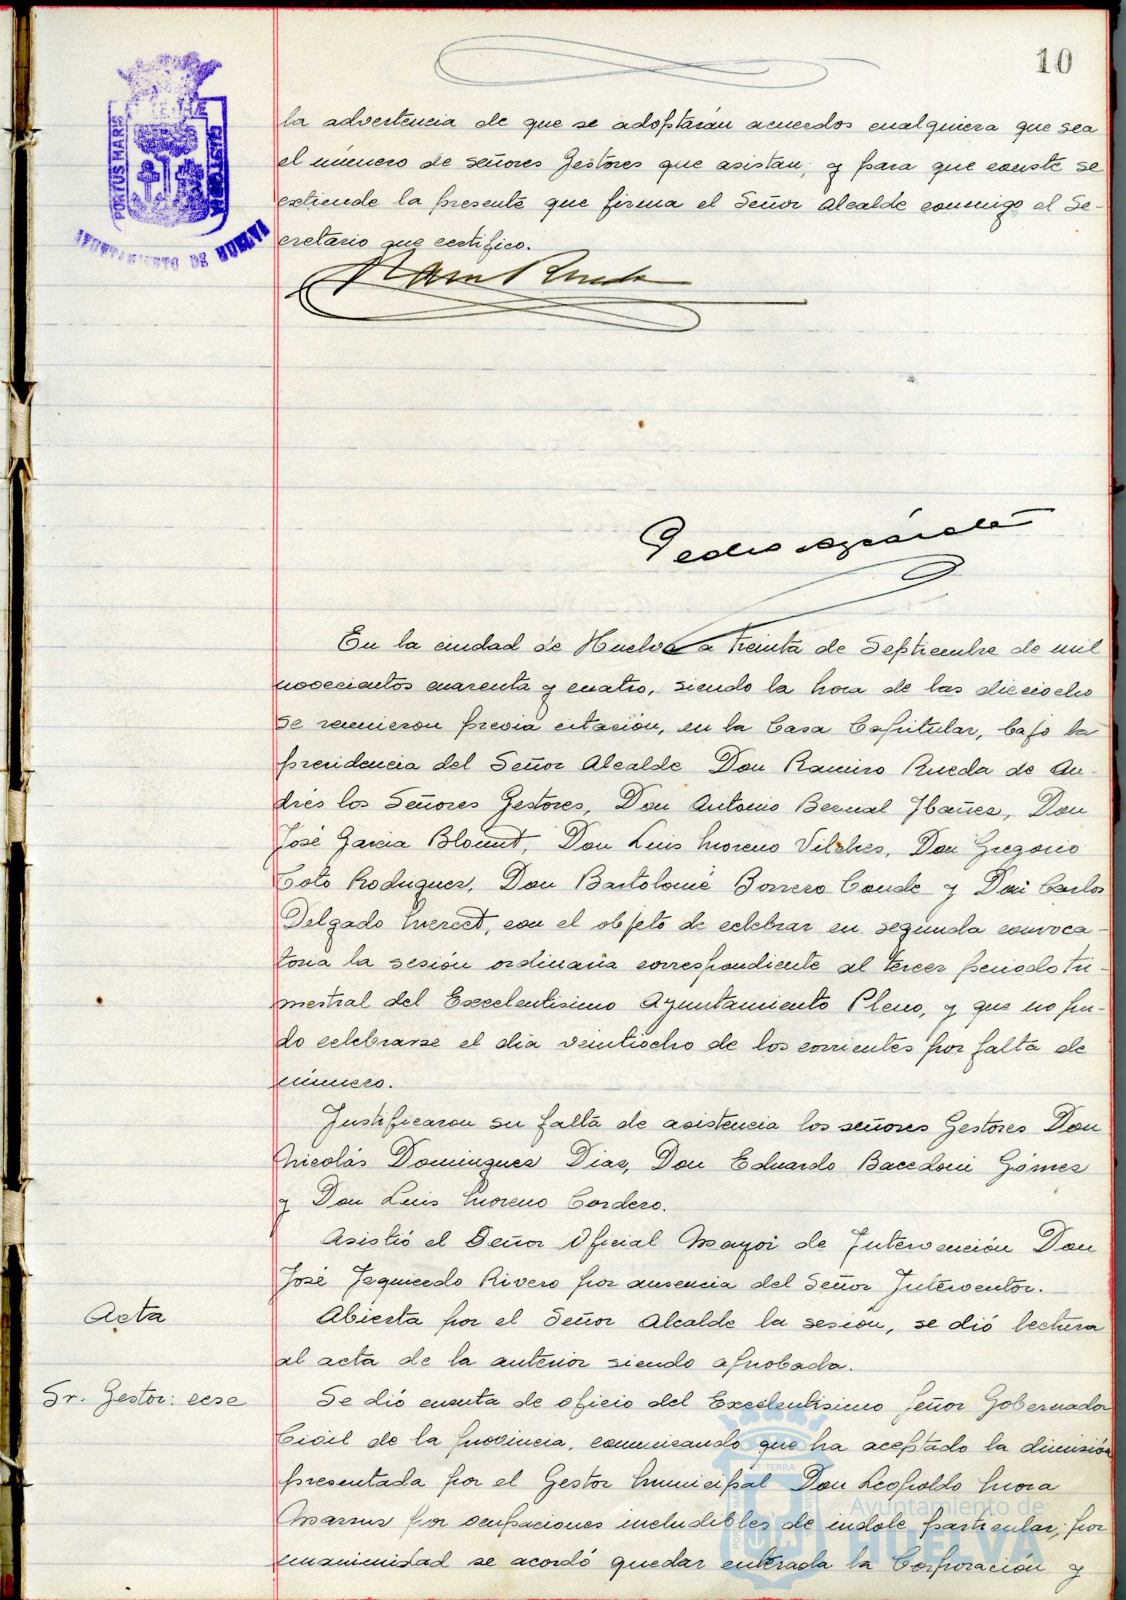 10
PORTUS MARIS
AYUNTAMIENTO DE HUELVA
la advertencia de que se adoptarán acuerdos cualquiera que sea
el número de señores Gestores que asistan; y para que conste se
extiende la presente que firma el Señor Alcalde conmigo el Se-
cretario que certifico.
Ram Rueda
Pedro Azcárate
En la ciudad de Huelva a treinta de Septiembre de mil
novecientos cuarenta y cuatro, siendo la hora de las dieciocho
se reunieron previa citación, en la Casa Capitular, bajo la
presidencia del Señor Alcalde Don Ramiro Rueda de An-
drés los Señores Gestores, Don Antonio Bernal Ibañez, Don
José Garcia Blount, Don Luis Moreno Vilches, Don Gregorio
Coto Rodriguez, Don Bartolomé Borrero Conde y Don Carlos
Delgado Merect, con el objeto de celebrar en segunda convoca-
toria la sesión ordinaria correspondiente al tercer periodo tri-
mestral del Excelentisimo Ayuntamiento Pleno, y que no pu-
do celebrarse el dia veintiocho de los corrientes por falta de
número.
Justificaron su falta de asistencia los señores Gestores Don
Nicolás Dominguez Diaz, Don Eduardo Bacedoni Gómez
y Don Luis Moreno Cordero.
Asistió el Señor Oficial Mayor de Intervención Don
José Izquierdo Rivero por ausencia del Señor Interventor.
Acta
Abierta por el Señor Alcalde la sesión, se dió lectura
al acta de la anterior siendo aprobada.
Sr. Gestor: cese
Se dió cuenta de oficio del Excelentisimo Señor Gobernador
Civil de la provincia, comunicando que ha aceptado la dimisión
presentada por el Gestor Municipal Don Leopoldo Mora
por ocupaciones ineludibles de indole particular; por
unanimidad se acordó quedar enterada la Corporación y
Ayuntamiento de
HUELVA